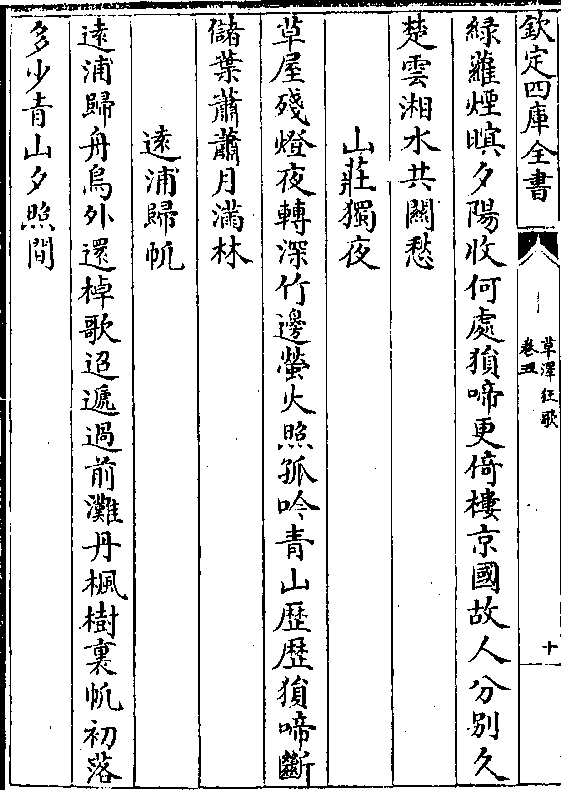 欽定四庫全書
草澤狂歌
卷五
十
綠蘿煙暝夕陽收何處猿啼更倚樓京國故人分别久
楚雲湘水共關愁
山莊獨夜
草屋殘燈夜轉深竹邊螢火照孤吟青山歷歷猿啼斷
儲葉蕭蕭月滿林
逺浦歸帆
逺浦歸舟鳥外還棹歌迢遞過前灘丹楓樹裏帆初落
多少青山夕照間